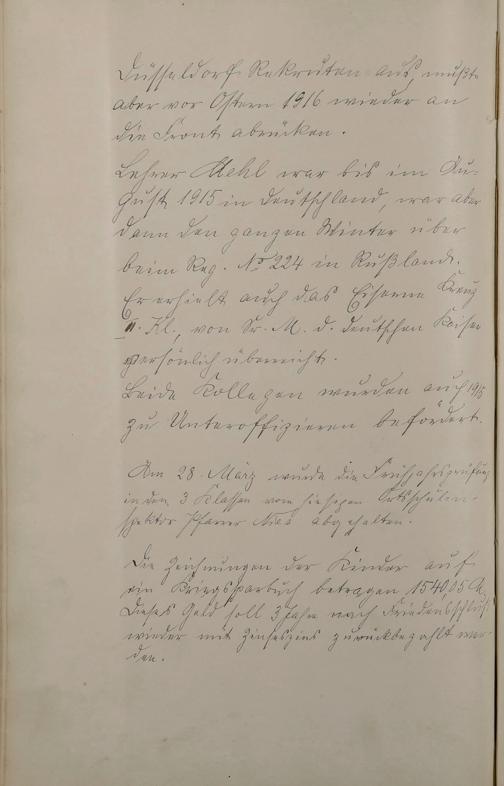 Düsseldorf Rekruten aus, mußte
aber vor Ostern 1916 wieder an
die Front abrücken.
Lehrer Mehl war bis im Au-
gust 1915 in Deutschland, war aber
dann den ganzen Winter über
beim Reg. No 224 in Rußland.
Er erhielt auch das Eiserne Kreuz
II. Kl., von Sr. M. d. deutschen Kaiser
persönlich überreicht.
Beide Kollegen wurden auch 1915
zu Unteroffizieren befördert.
Am 28. März wurde die Frühjahrsprüfung
in den 3 Klassen vom hiesigen Ortsschulin-
spektor Pfarrer abgehalten.
Die Zeichnungen der Kinder auf
ein Kriegssparbuch betragen 1540,05 M.
Dieses Geld soll 3 Jahre nach Friedensschluß
wieder mit Zinseszins zurückbezahlt wer-
den.